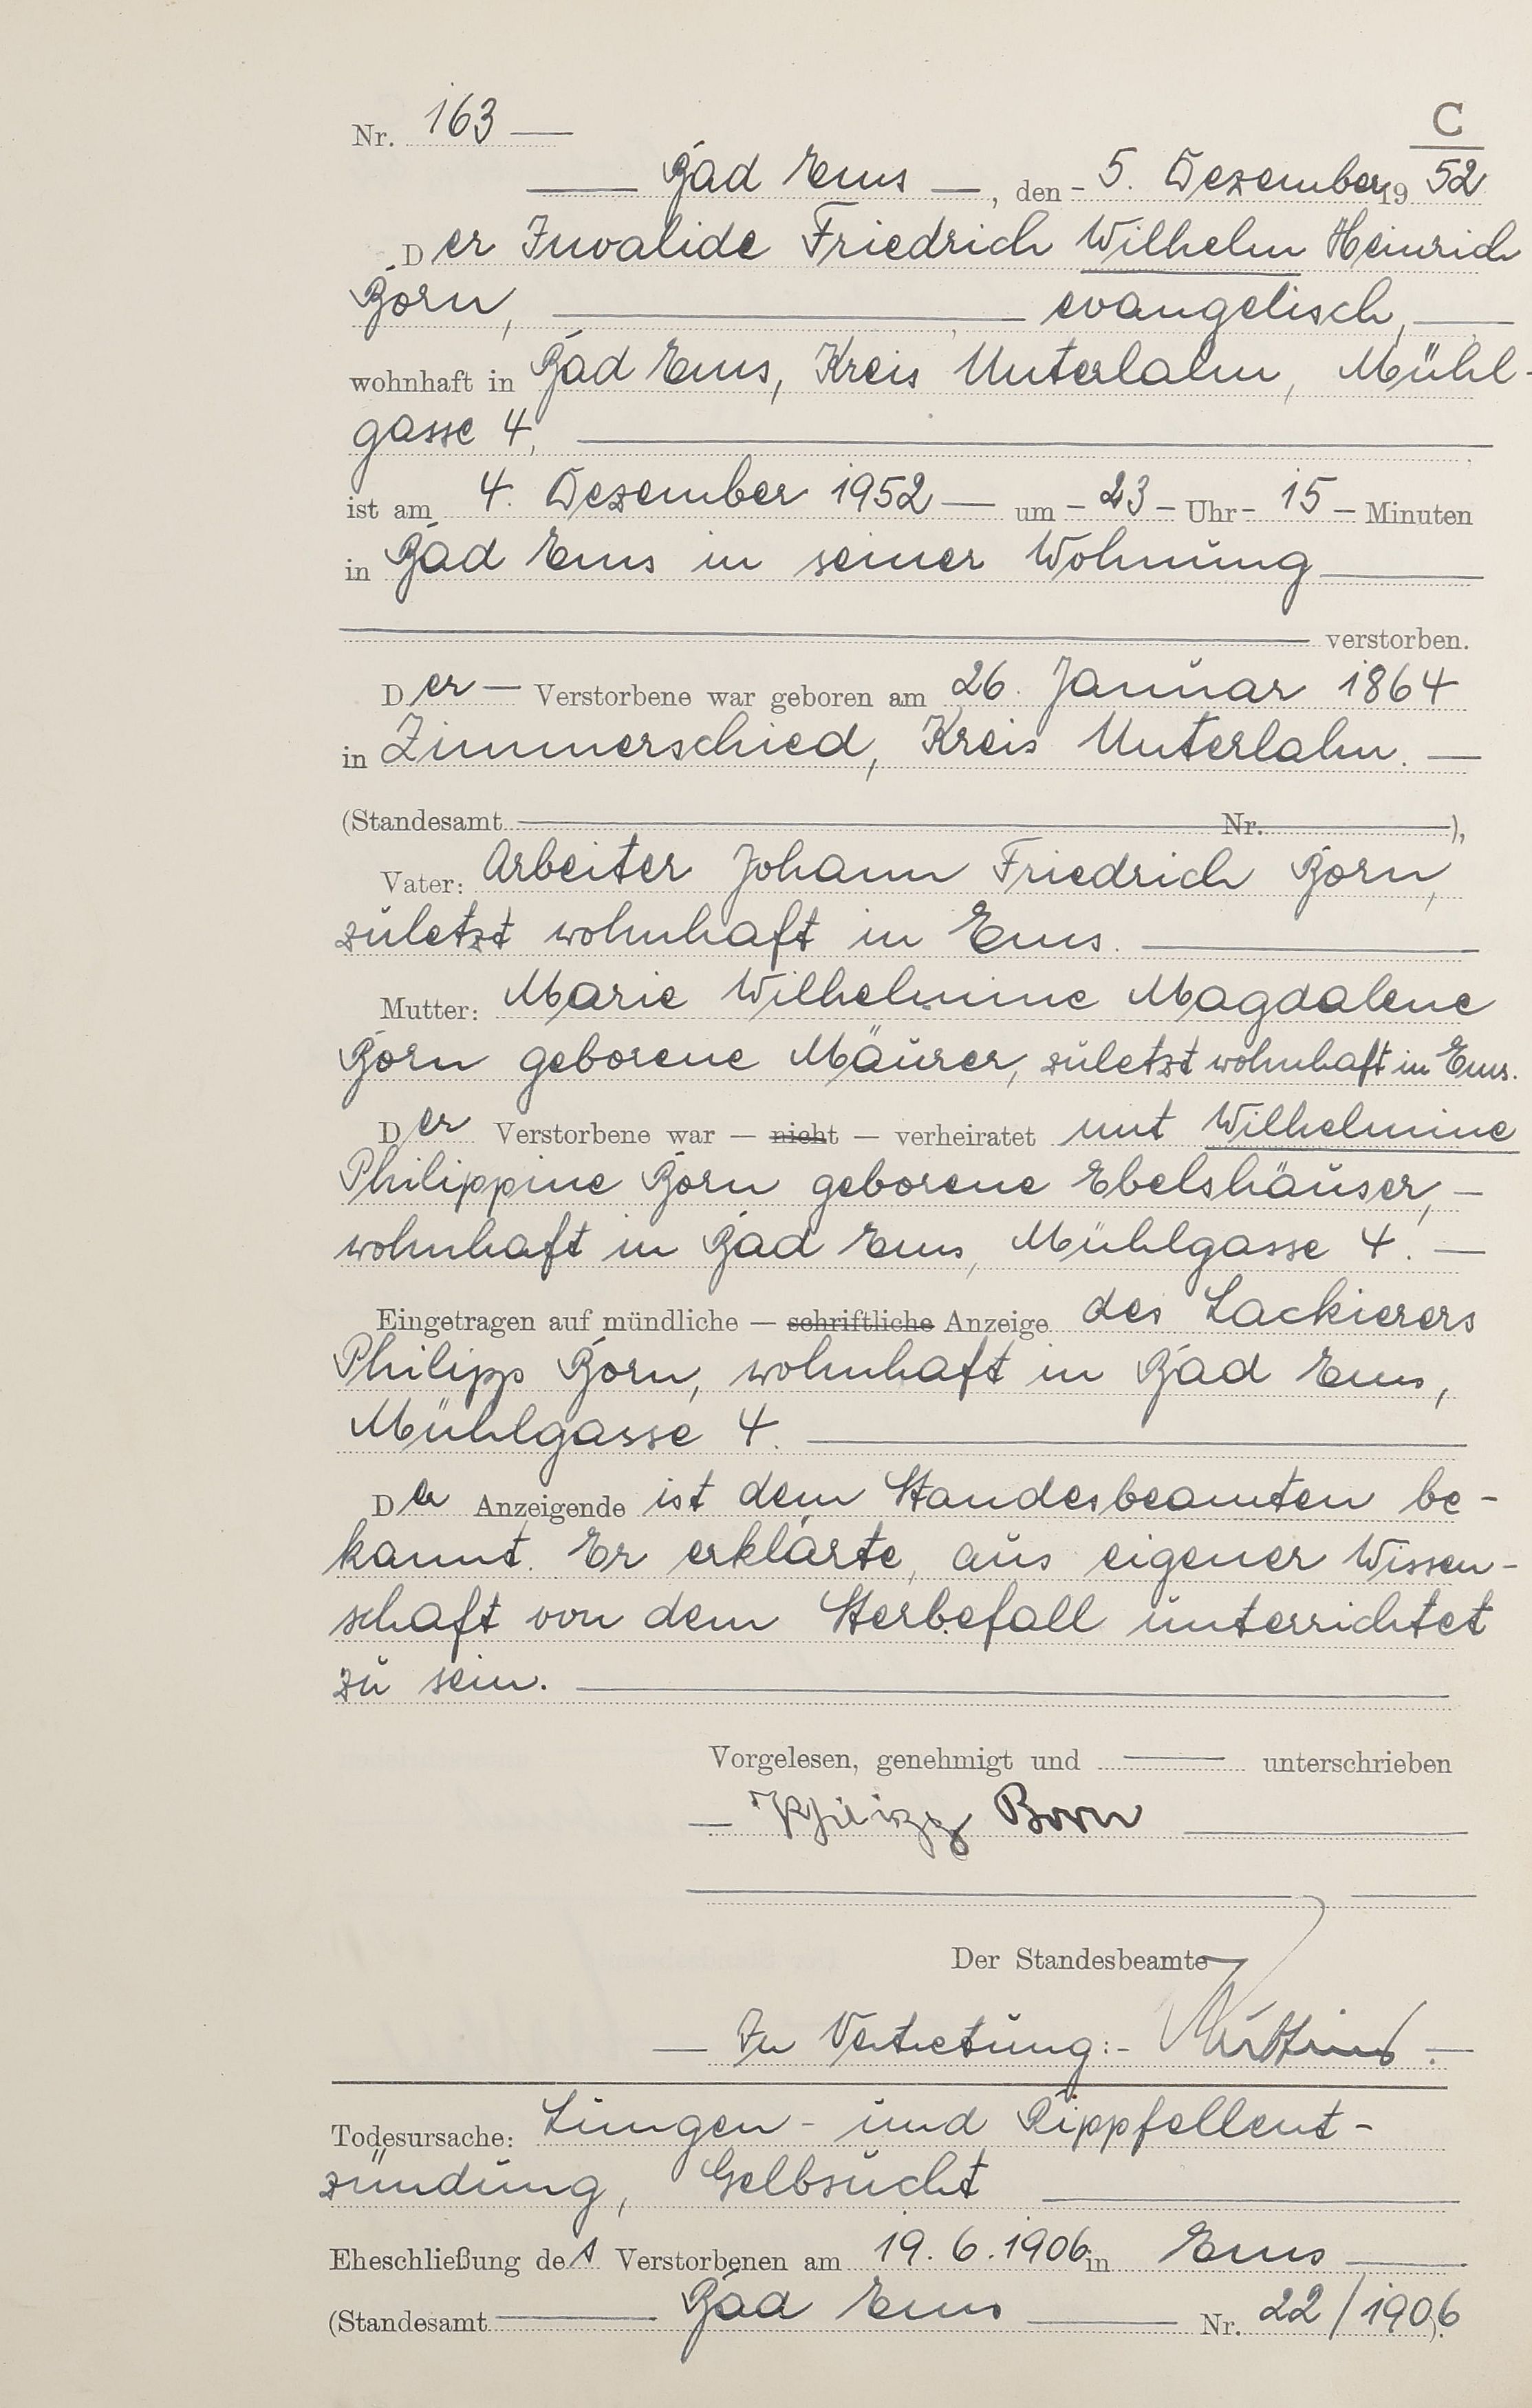 Nr. 163
C
Bad Ems, den 5. Dezember 19 52
Der Invalide Friedrich Wilhelm Heinrich
Born, evangelisch,
wohnhaft in Bad Ems, Kreis Unterlahn, Mühl-
gasse 4,
ist am 4. Dezember 1952 um 23 Uhr 15 Minuten
in Bad Ems in seiner Wohnung
verstorben.
Der Verstorbene war geboren am 26. Januar 1864
in Zimmerschied, Kreis Unterlahn.
(Standesamt Nr. ),
Vater: Arbeiter Johann Friedrich Born,
zuletzt wohnhaft in Ems.
Mutter: Marie Wilhelmine Magdalene
Born geborene Mäurer, zuletzt wohnhaft in Ems.
Der Verstorbene war — nicht — verheiratet mit Wilhelmine
Philippine Born geborene Ebelshäuser,
wohnhaft in Bad Ems, Mühlgasse 4.
Eingetragen auf mündliche — schriftliche Anzeige des Lackierers
Philipp Born, wohnhaft in Bad Ems,
Mühlgasse 4.
Der Anzeigende ist dem Standesbeamten be-
kannt. Er erklärte, aus eigener Wissen-
schaft von dem Sterbefall unterrichtet
zu sein.
Vorgelesen, genehmigt und unterschrieben
Philipp Born
Der Standesbeamte
In Vertretung:
Todesursache: Lungen- und Rippfellent-
zündung, Gelbsucht
Eheschließung des Verstorbenen am 19.6.1906 in Ems
(Standesamt Bad Ems Nr. 22/1906).